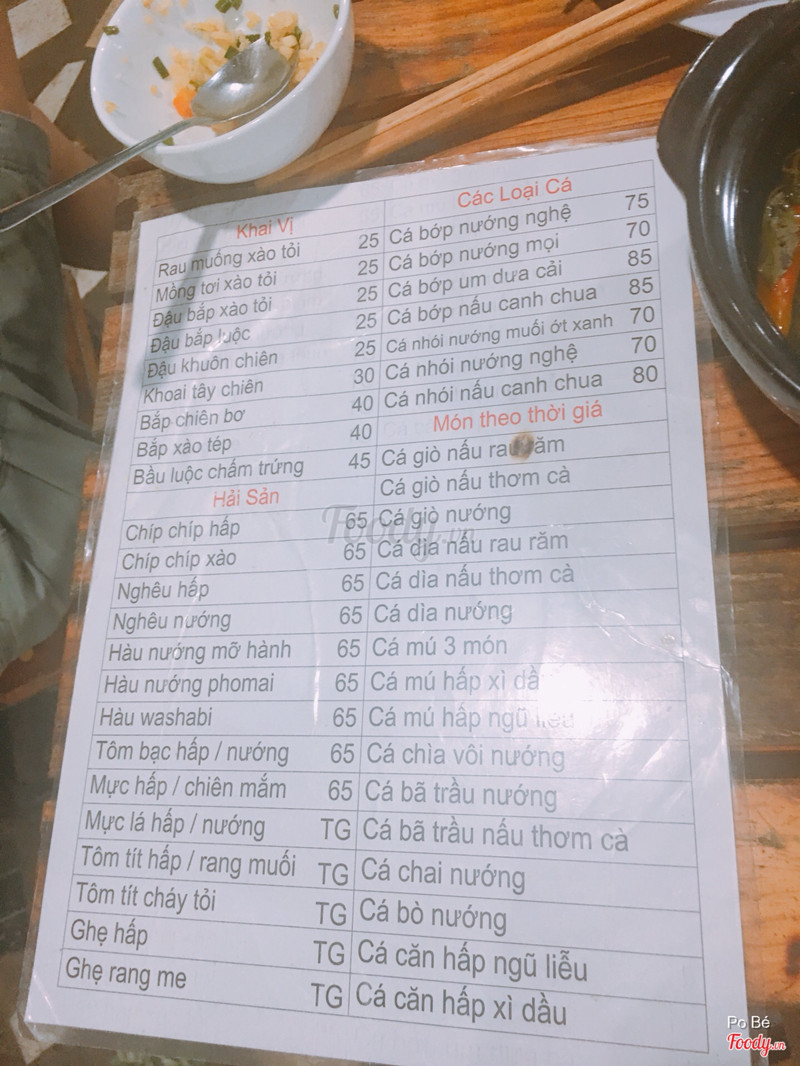 Khai Vị
Rau muống xào tỏi 25
Mồng tơi xào tỏi 25
Đậu bắp xào tỏi 25
Đậu bắp luộc 25
Đậu khuôn chiên 25
Khoai tây chiên 30
Bắp chiên bơ 40
Bắp xào tép 40
Bầu luộc chấm trứng 45
Hải Sản
Chíp chíp hấp 65
Chíp chíp xào 65
Nghêu hấp 65
Nghêu nướng 65
Hàu nướng mỡ hành 65
Hàu nướng phomai 65
Hàu washabi 65
Tôm bạc hấp / nướng 65
Mực hấp / chiên mắm 65
Mực lá hấp / nướng TG
Tôm tít hấp / rang muối TG
Tôm tít cháy tỏi TG
Ghẹ hấp TG
Ghẹ rang me TG
Các Loại Cá
Cá bớp nướng nghệ 75
Cá bớp nướng mọi 70
Cá bớp um dưa cải 85
Cá bớp nấu canh chua 85
Cá nhói nướng muối ớt xanh 70
Cá nhói nướng nghệ 70
Cá nhói nấu canh chua 80
Món theo thời giá
Cá giò nấu rau răm
Cá giò nấu thơm cà
Cá giò nướng
Cá dìa nấu rau răm
Cá dìa nấu thơm cà
Cá dìa nướng
Cá mú 3 món
Cá mú hấp xì
Cá mú hấp ngũ liễu
Cá chìa vôi nướng
Cá bã trầu nướng
Cá bã trầu nấu thơm cà
Cá chai nướng
Cá bò nướng
Cá căn hấp ngũ liễu
Cá căn hấp xì dầu
Foody.vn
Po Bé
Foody.vn